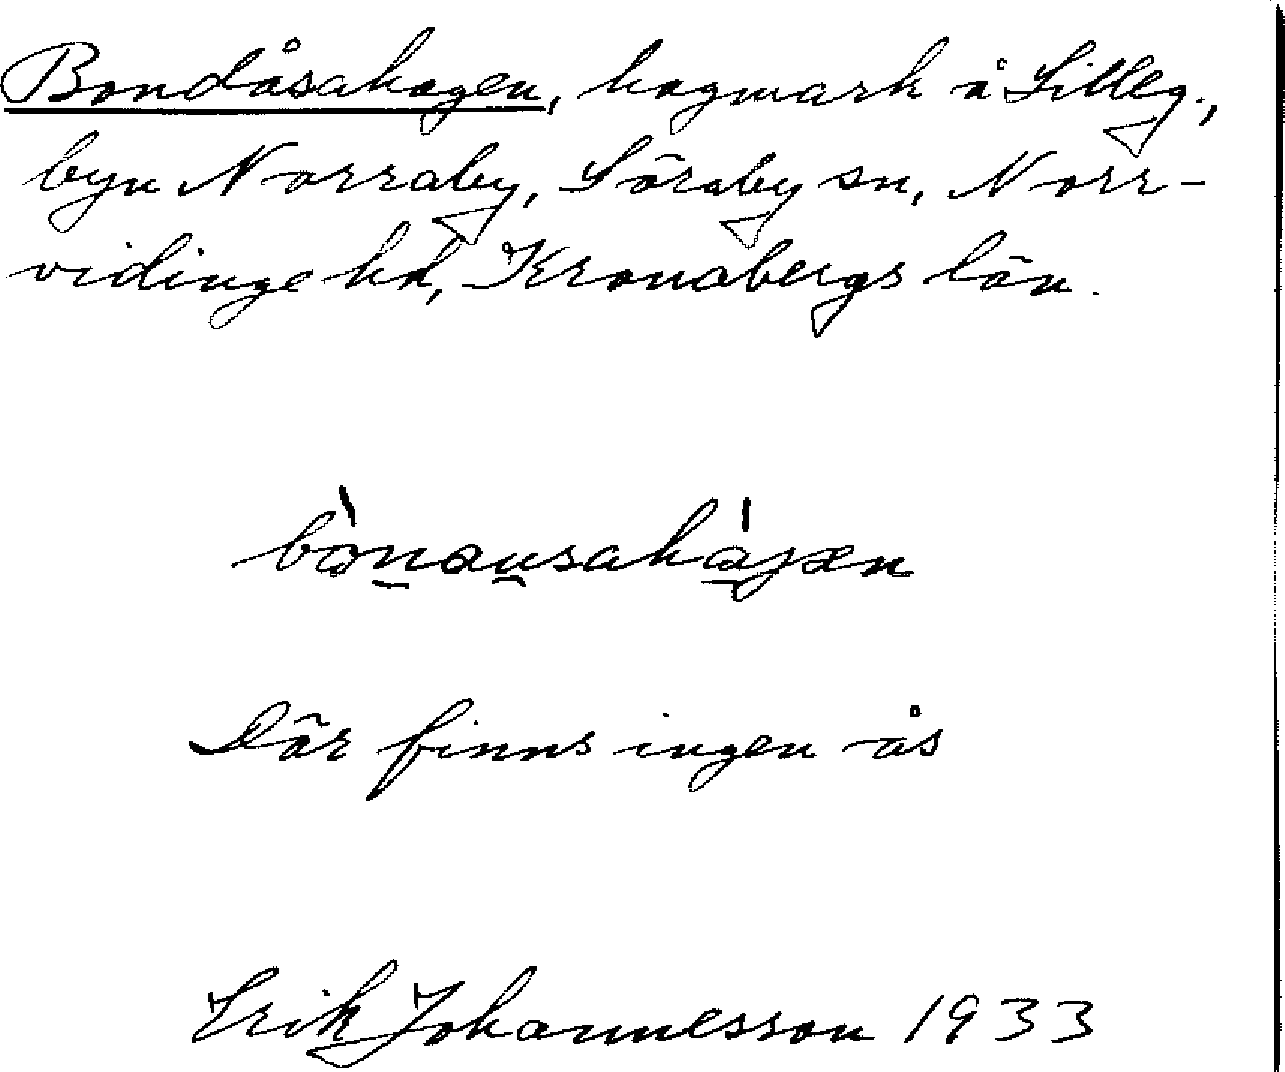 Bondåsahagen, hagmark å Lilleg.,
byn Norraby, Söraby sn, Norr-
vidinge hd, Kronobergs län.
Där finns ingen ås
Erik Johannesson 1933